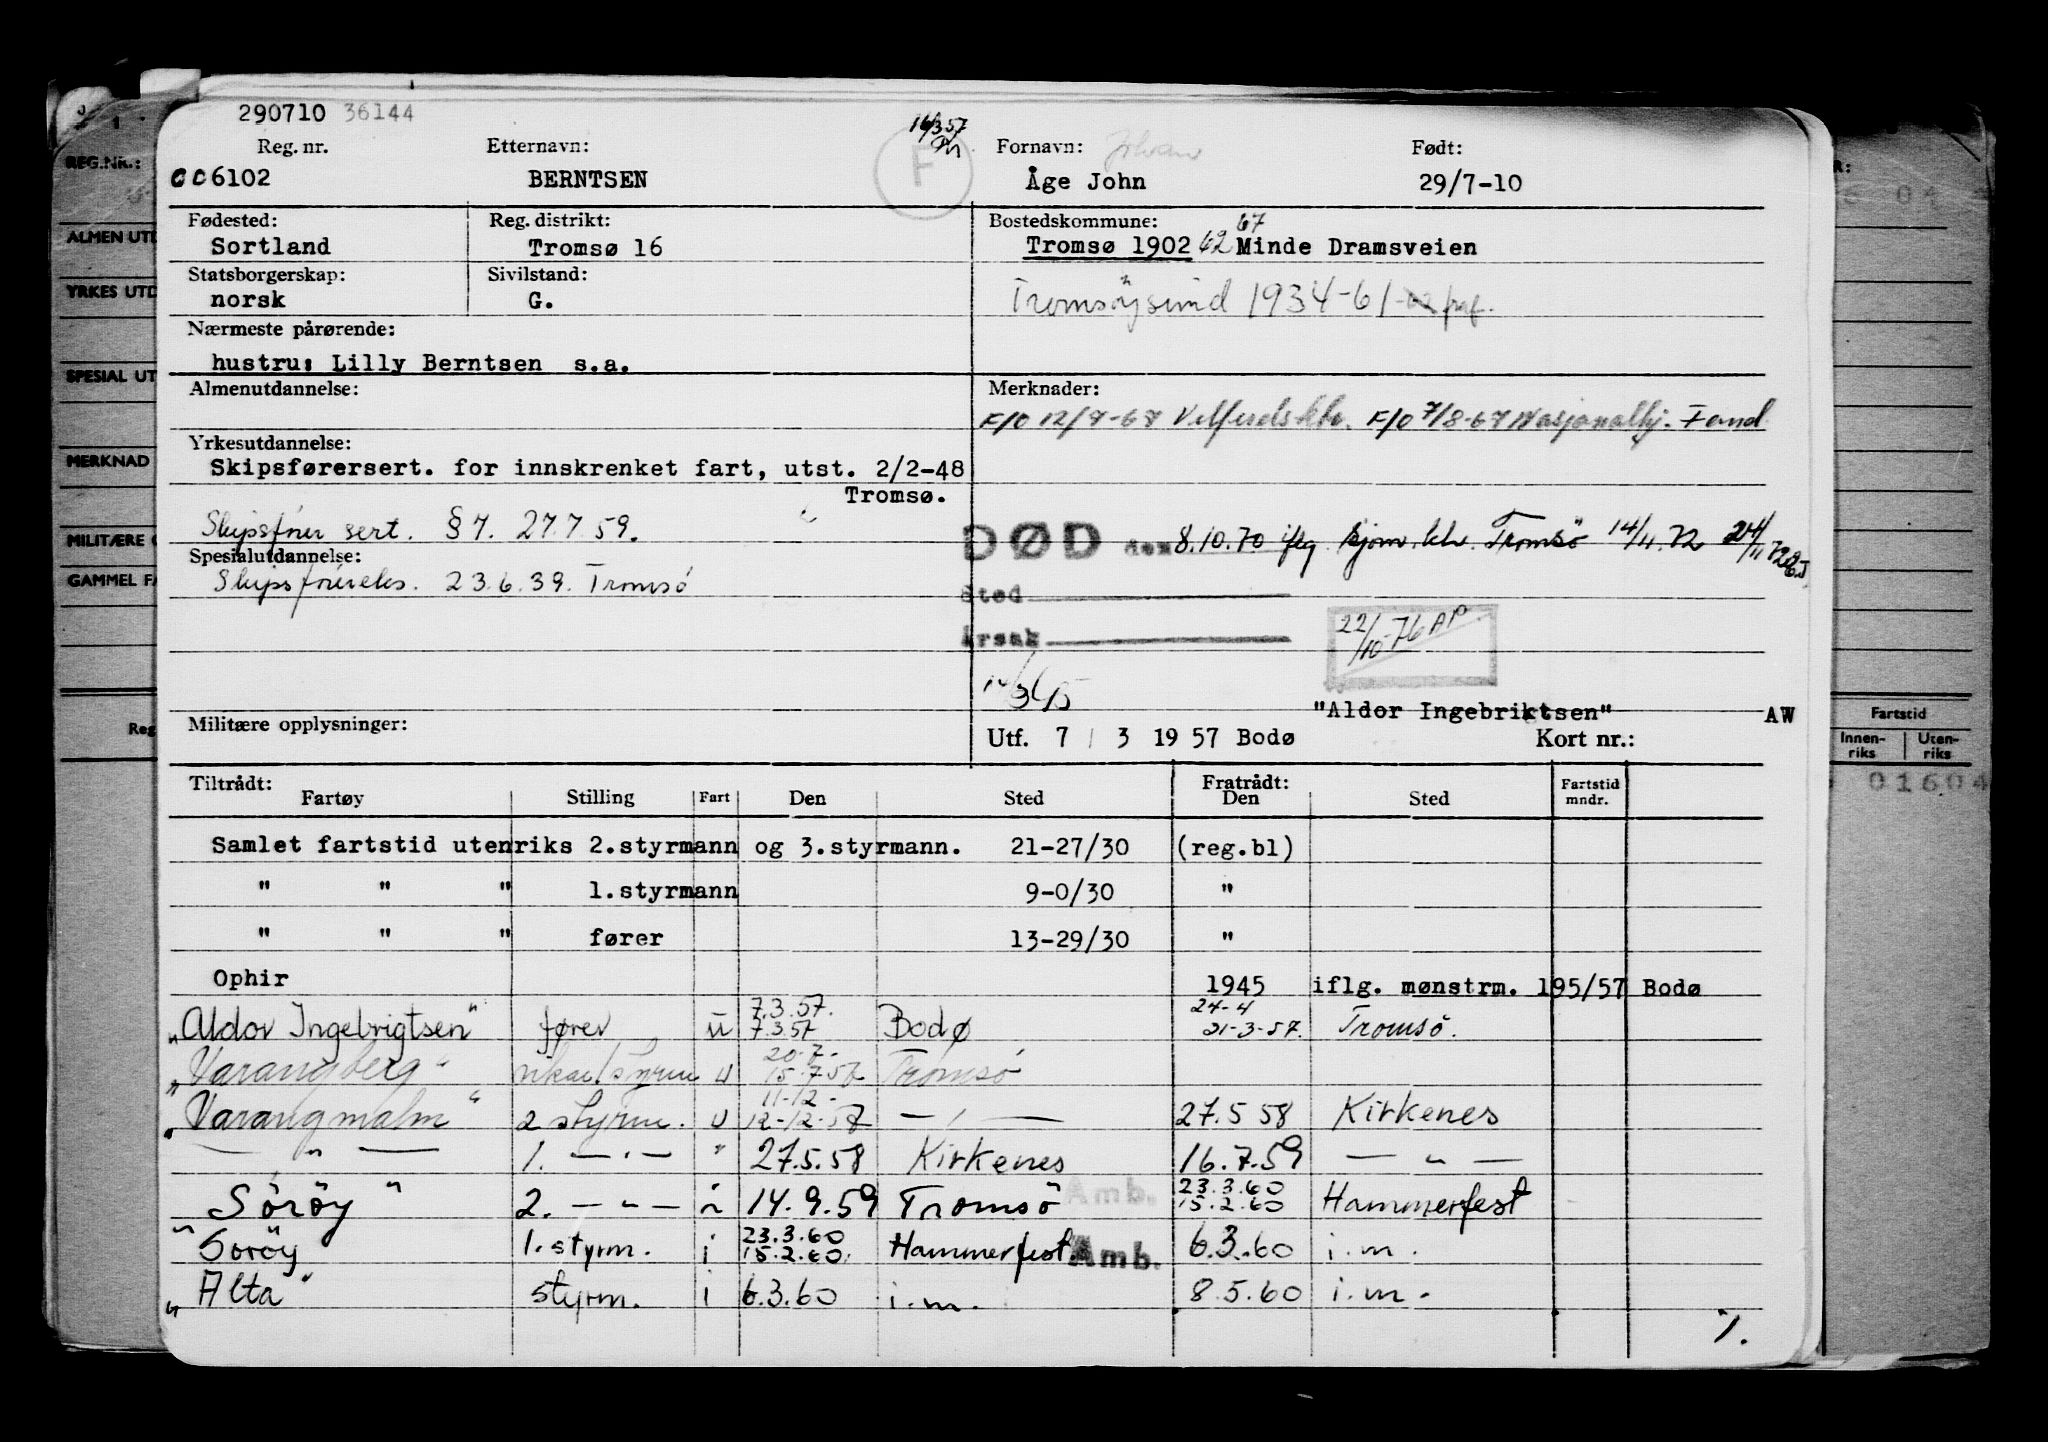 290710 36144
16/3 57
Reg. nr. Etternavn: F Fornavn: Johan Født:
006102 BERNTSEN Åge John 29/7-10
Fødested: Reg. distrikt: Bostedskommune: 67
Sortland Tromsø 16 Tromsø 1902 62 Minde Dramsveien
Statsborgerskap: Sivilstand:
norsk G. Tromsöysund 1934-61
Nærmeste pårørende:
hustru: Lilly Berntsen s.a.
Almenutdannelse: Merknader:
F/O 12/7-67 Velferdsktr. F/O 7/8-67 Nasjonalhj. Fond
Yrkesutdannelse:
Skipsførersert. for innskrenket fart, utst. 2/2-48
Tromsø.
Skipsfører sert. § 7. 27.7.59.
DØD den 8.10.70 iflg. sjøm.ktr. Tromsö 14/11.72 24/11 72
Spesialutdannelse:
Skipsførereks. 23.6.39. Tromsö
Sted
Årsak
22/10-76 AP
"Aldor Ingebriktsen" AW
Militære opplysninger: Utf. 7 / 3 19 57 Bodø Kort nr.:
Tiltrådt: Fratrådt: Fartstid
Fartøy Stilling Fart Den Sted Den Sted mndr.
Samlet fartstid utenriks 2.styrmann og 3.styrmann. 21-27/30 (reg.bl)
" " " 1.styrmann 9-0/30 "
" " " fører 13-29/30 "
Ophir 1945 iflg. mønstrm. 195/57 Bodø
7.3.57. 24-4
"Aldor Ingebrigtsen" fører u 7.3.57 Bodø 21-3-57. Tromsö.
20.7-
"Varangberg" vikar/styrm u 15.7.57 Tromsö
11-12-
"Varangmalm" 2 styrm. u 12-12-57 — " — 27.5 58 Kirkenes
— " — 1. — " — " 27.5.58 Kirkenes 16.7.59 — " —
23.3.60
Söröy" 2. — " — i 14.9.59 Tromsö Amb. 15.2.60 Hammerfest
23.3.60
"Soröy 1. styrm. i 15.2.60. Hammerfest. Amb. 6.3.60 i.m.
"Alta" styrm. i 6.3.60 i.m. 8.5.60 i.m.
%.
REG.NR.:
ALMEN UTD
YRKES UTD
SPESIAL UT
MERKNAD
MILITÆRE
GAMMEL FA
Reg
R:
Fartstid
Innen-riks Uten-riks
01604